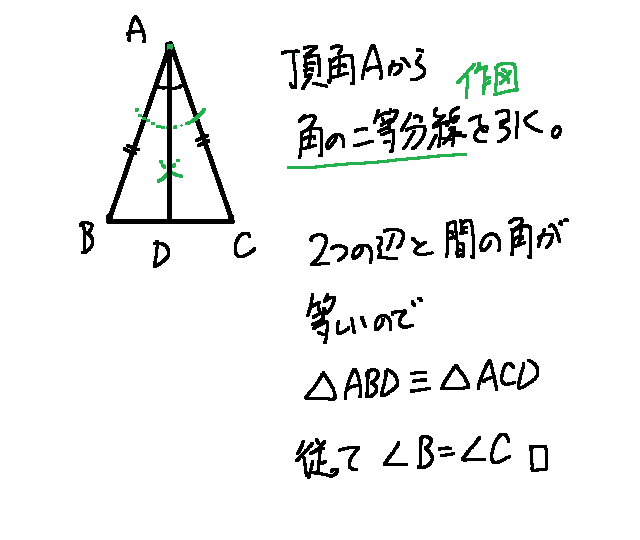 A
B
D
C
頂角Aから
作図
角の二等分線を引く。
2つの辺と間の角が
等しいので
△ABD≡△ACD
従って ∠B=∠C □